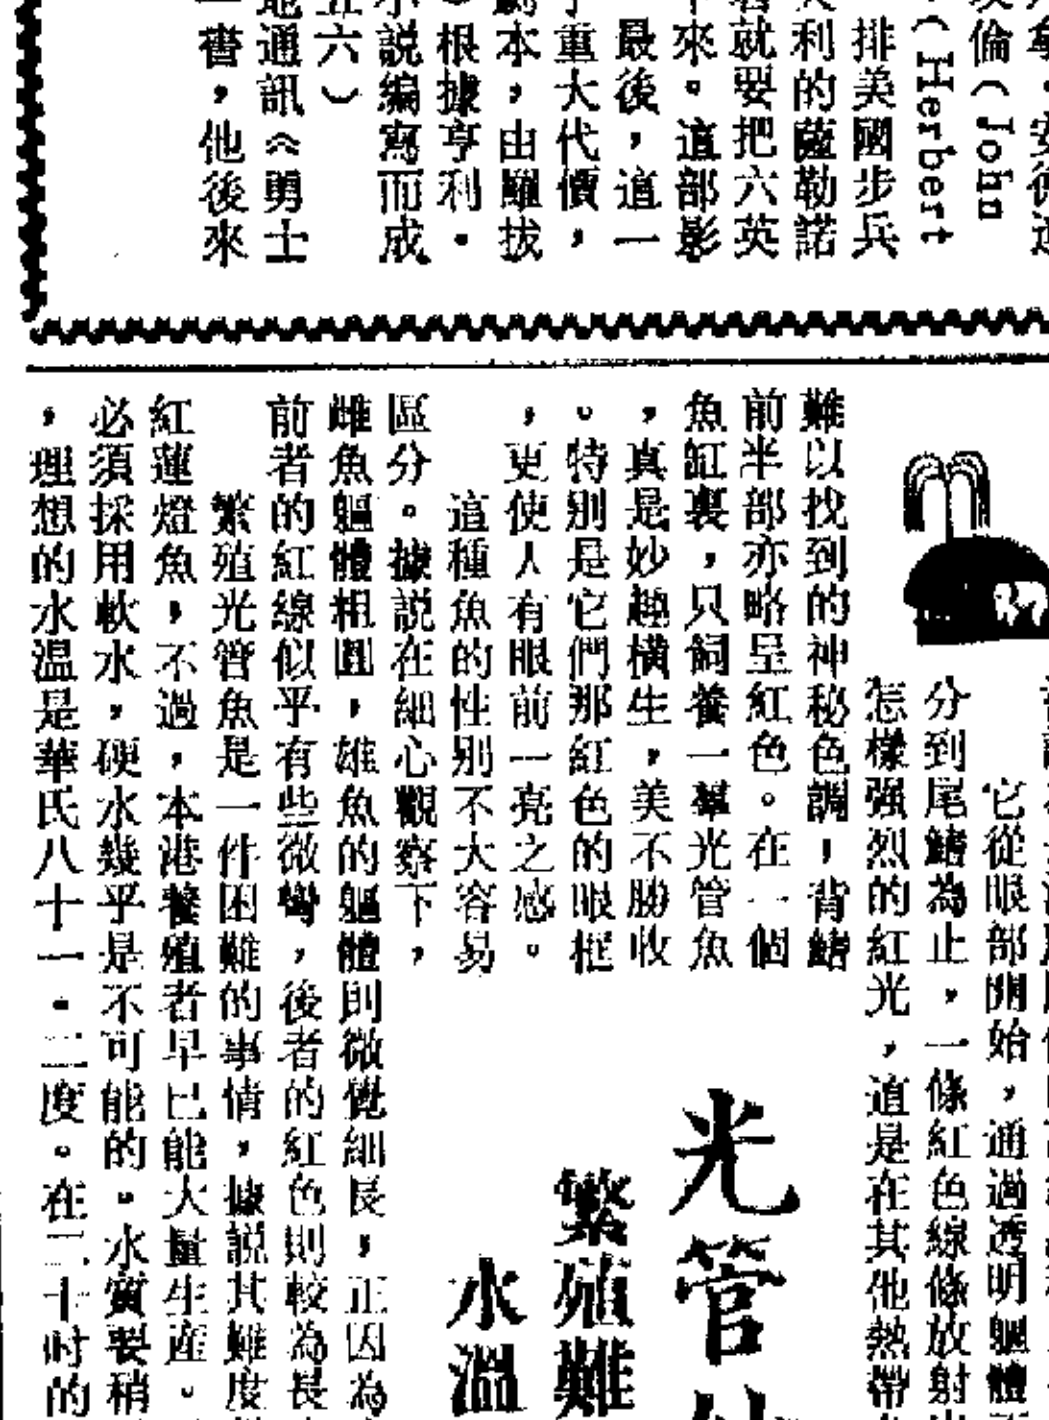 安德遜
倫（John
（Herbert
排美國步兵
利的薩勒諾
就要把六英
來。這部影
最後，這一
重大代價，
本，由羅拔
根據亨利·
説編寫而成
五六）
地通訊《勇士
一書，他後來
它從眼部開始，通過透明軀體
分到尾鰭為止，一條紅色線條放射
怎樣强烈的紅光，這是在其他熱帶
難以找到的神秘色調，背鰭
前半部亦略呈紅色。在一個
魚缸裏，只飼養一羣光管魚
，真是妙趣橫生，美不勝收
。特别是它們那紅色的眼框
，更使人有眼前一亮之感。
這種魚的性别不大容易
區分。據説在細心觀察下，
雌魚軀體粗圓，雄魚的軀體則微覺細長，正因為
前者的紅線似乎有些微彎，後者的紅色則較為長
繁殖光管魚是一件困難的事情，據説其難度
紅蓮燈魚，不過，本港養殖者早已能大量生産。
必須採用軟水，硬水幾乎是不可能的。水質要稍
，理想的水温是華氏八十一·二度。在二十吋的
光管
繁殖難
水温